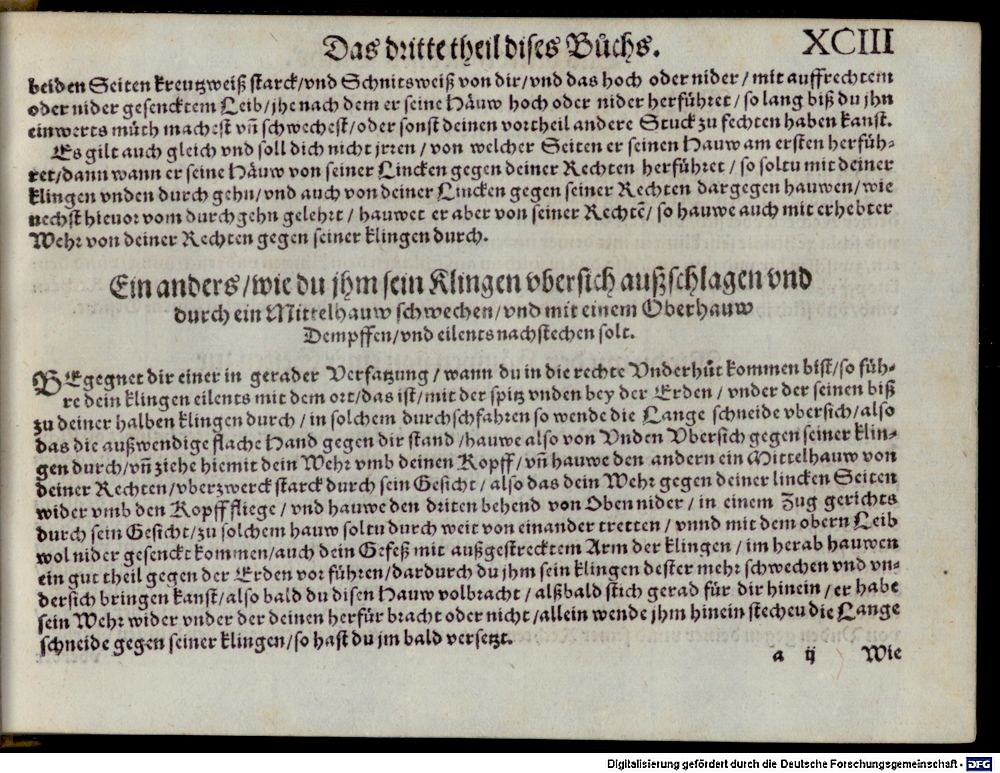 Das dritte theil dises Bůchs. XCIII
beiden Seiten kreutzweiß starck/vnd Schnitsweiß von dir/vnd das hoch oder nider/mit auffrechtem
oder nider gesencktem Leib/jhe nach dem er seine Häuw hoch oder nider herführet/so lang biß du jhn
einwerts můth machest vñ schwechest/oder sonst deinen vortheil andere Stuck zu fechten haben kanst.
Es gilt auch gleich vnd soll dich nicht jrren/von welcher Seiten er seinen Hauw am ersten herfüh-
ret/dann wann er seine Häuw von seiner Lincken gegen deiner Rechten herführet/so soltu mit deiner
klingen vnden durch gehn/vnd auch von deiner Lincken gegen seiner Rechten dargegen hauwen/wie
nechst hieuor vom durchgehn gelehrt/hauwet er aber von seiner Rechtẽ/so hauwe auch mit erhebter
Wehr von deiner Rechten gegen seiner klingen durch.
Ein anders/wie du jhm sein Klingen vbersich außschlagen vnd
durch ein Mittelhauw schwechen/vnd mit einem Oberhauw
Dempffen/vnd eilents nachstechen solt.
BEgegnet dir einer in gerader Versatzung/wann du in die rechte Vnderhůt kommen bist/so füh-
re dein klingen eilents mit dem ort/das ist/mit der spitz vnden bey der Erden/vnder der seinen biß
zu deiner halben klingen durch/in solchem durchschfahren so wende die Lange schneide vbersich/also
das die außwendige flache Hand gegen dir stand/hauwe also von Vnden Vbersich gegen seiner klin-
gen durch/vñ ziehe hiemit dein Wehr vmb deinen Kopff/vñ hauwe den andern ein Mittelhauw von
deiner Rechten/vberzwerck starck durch sein Gesicht/also das dein Wehr gegen deiner lincken Seiten
wider vmb den Kopff fliege/vnd hauwe den driten behend von Oben nider/in einem Zug gerichts
durch sein Gesicht/zu solchem hauw soltu durch weit von einander tretten/vnnd mit dem obern Leib
wol nider gesenckt kommen/auch dein Gefeß mit außgestrecktem Arm der klingen/im herab hauwen
ein gut theil gegen der Erden vor führen/dardurch du jhm sein klingen dester mehr schwechen vnd vn-
dersich bringen kanst/also bald du disen Hauw volbracht/alßbald stich gerad für dir hinein/er habe
sein Wehr wider vnder der deinen herfür bracht oder nicht/allein wende jhm hinein stechen die Lange
schneide gegen seiner klingen/so hast du jm bald versetzt.
a ij Wie
Digitalisierung gefördert durch die Deutsche Forschungsgemeinschaft - DFG